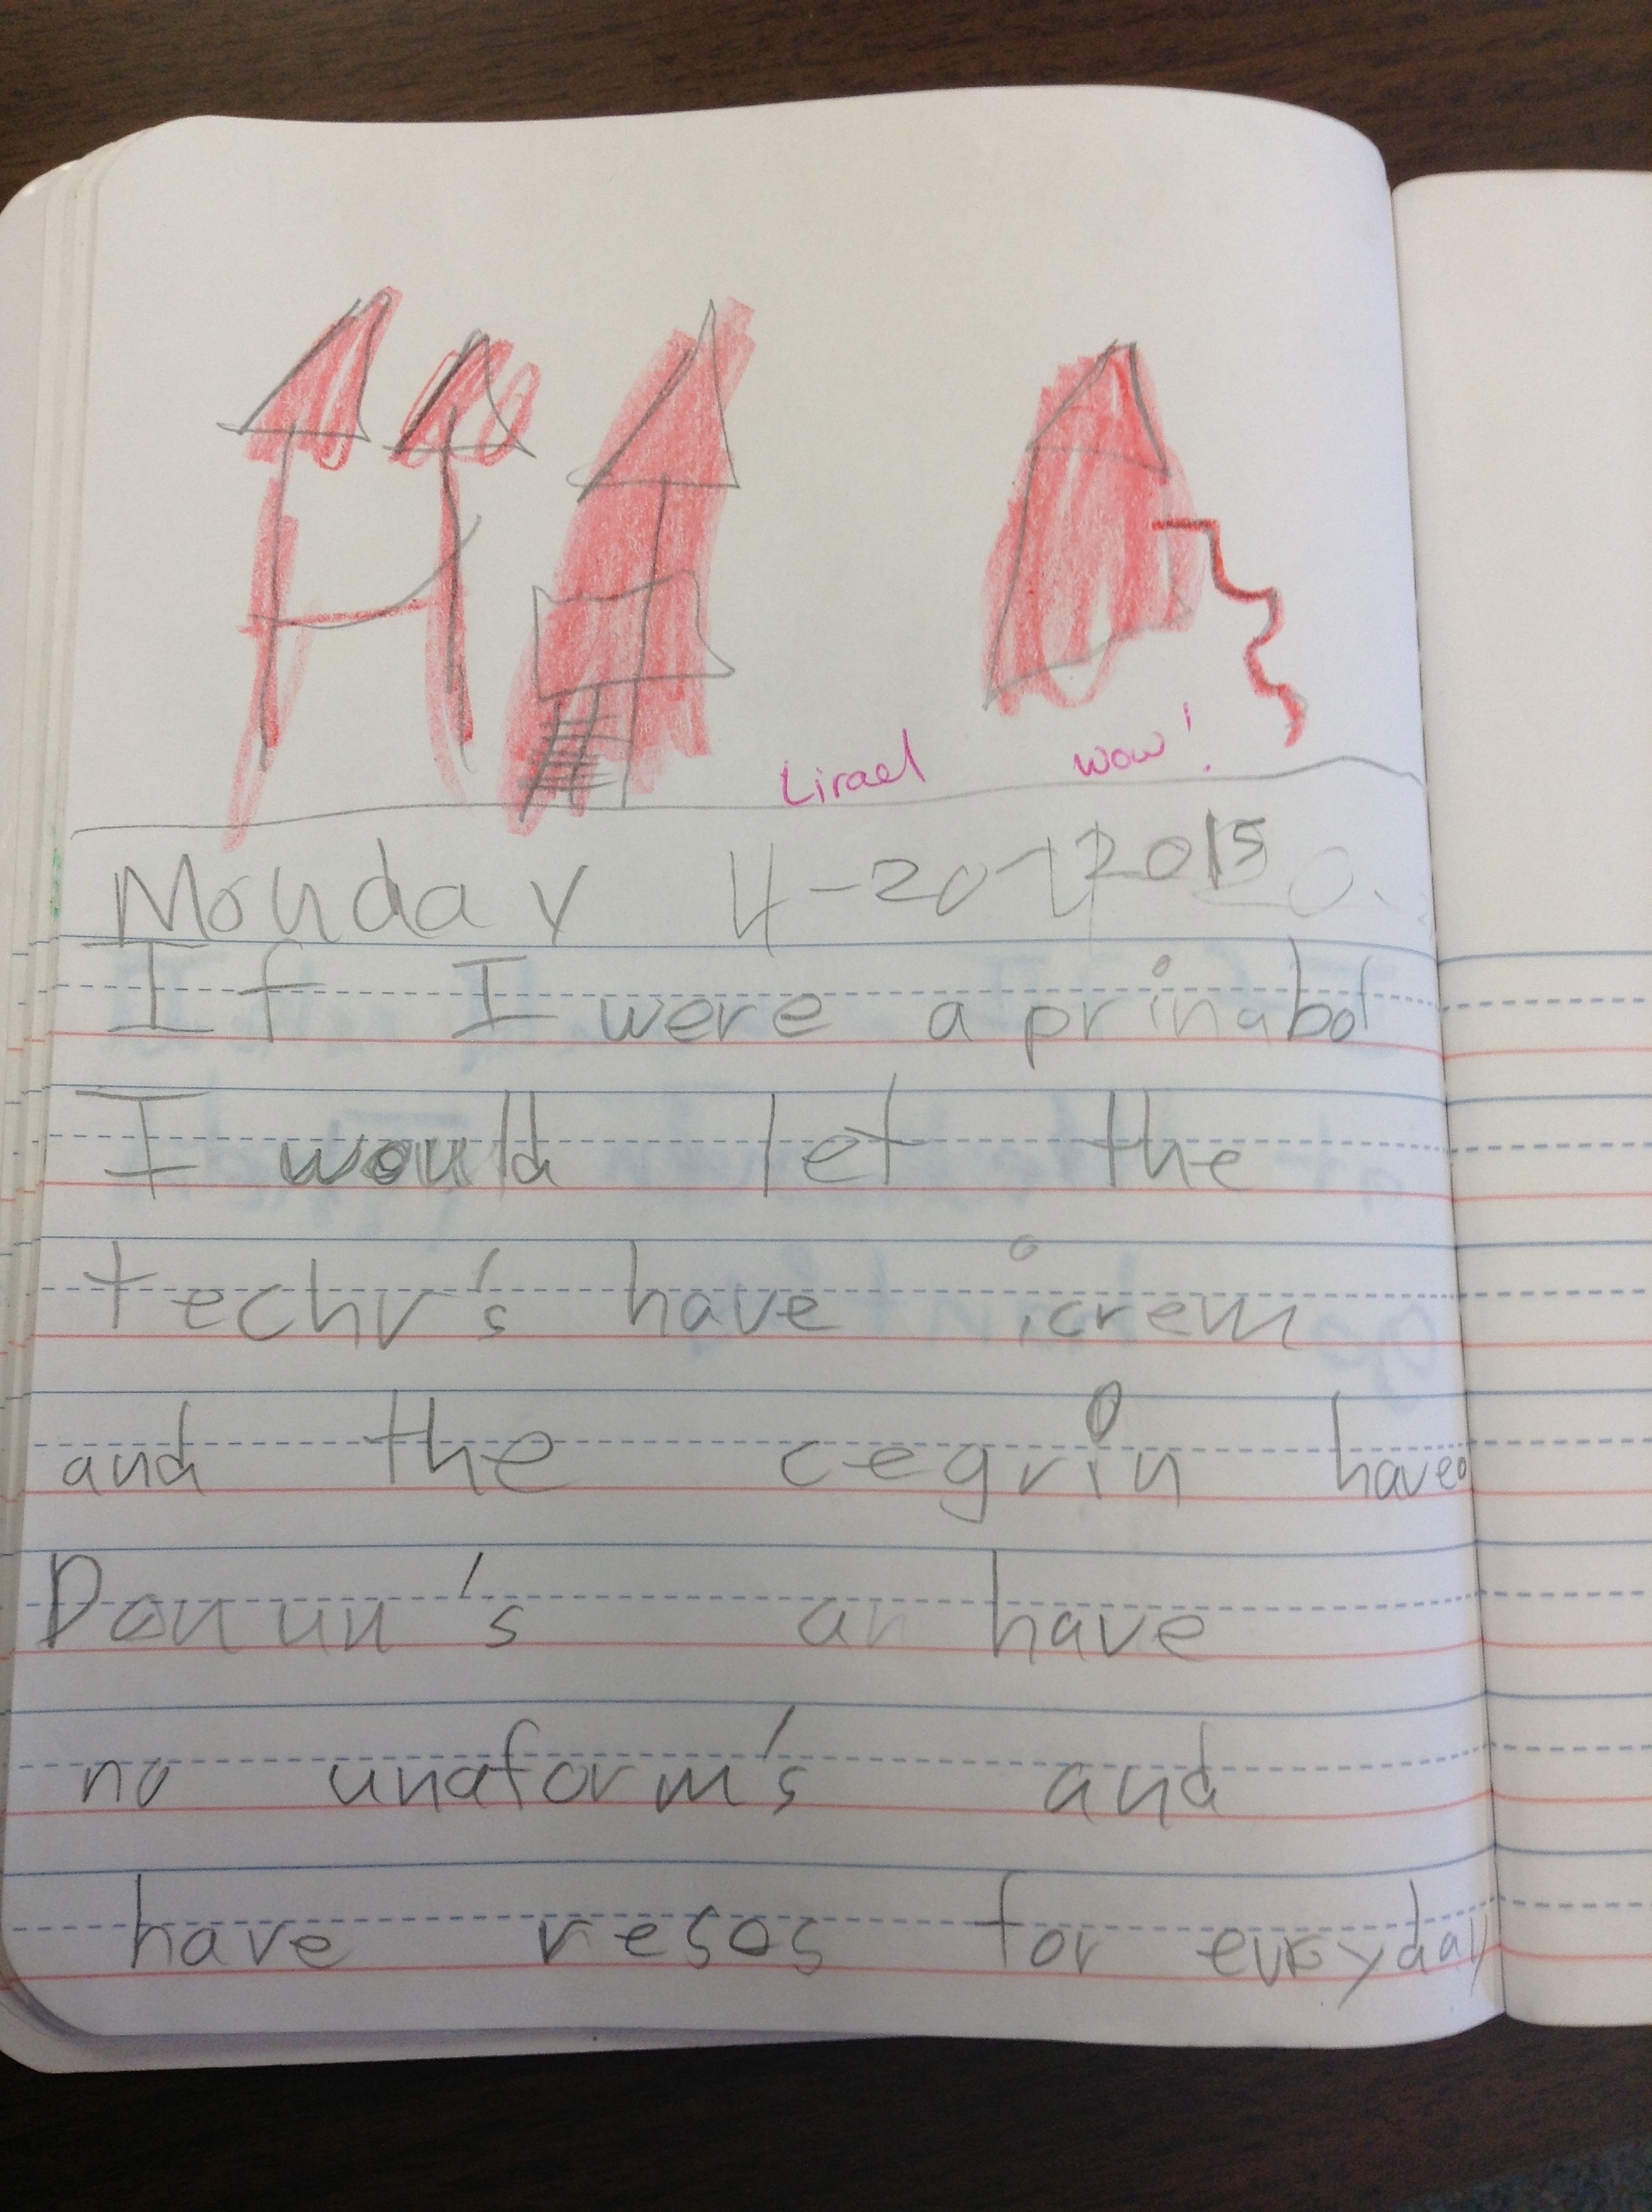 Lirael wow!
Monday 4-20-2015
If I were a prinabol
I would let the
techr's have icrem
and the cegrin have
Donun's an have
no unaform's and
have resos for evryday